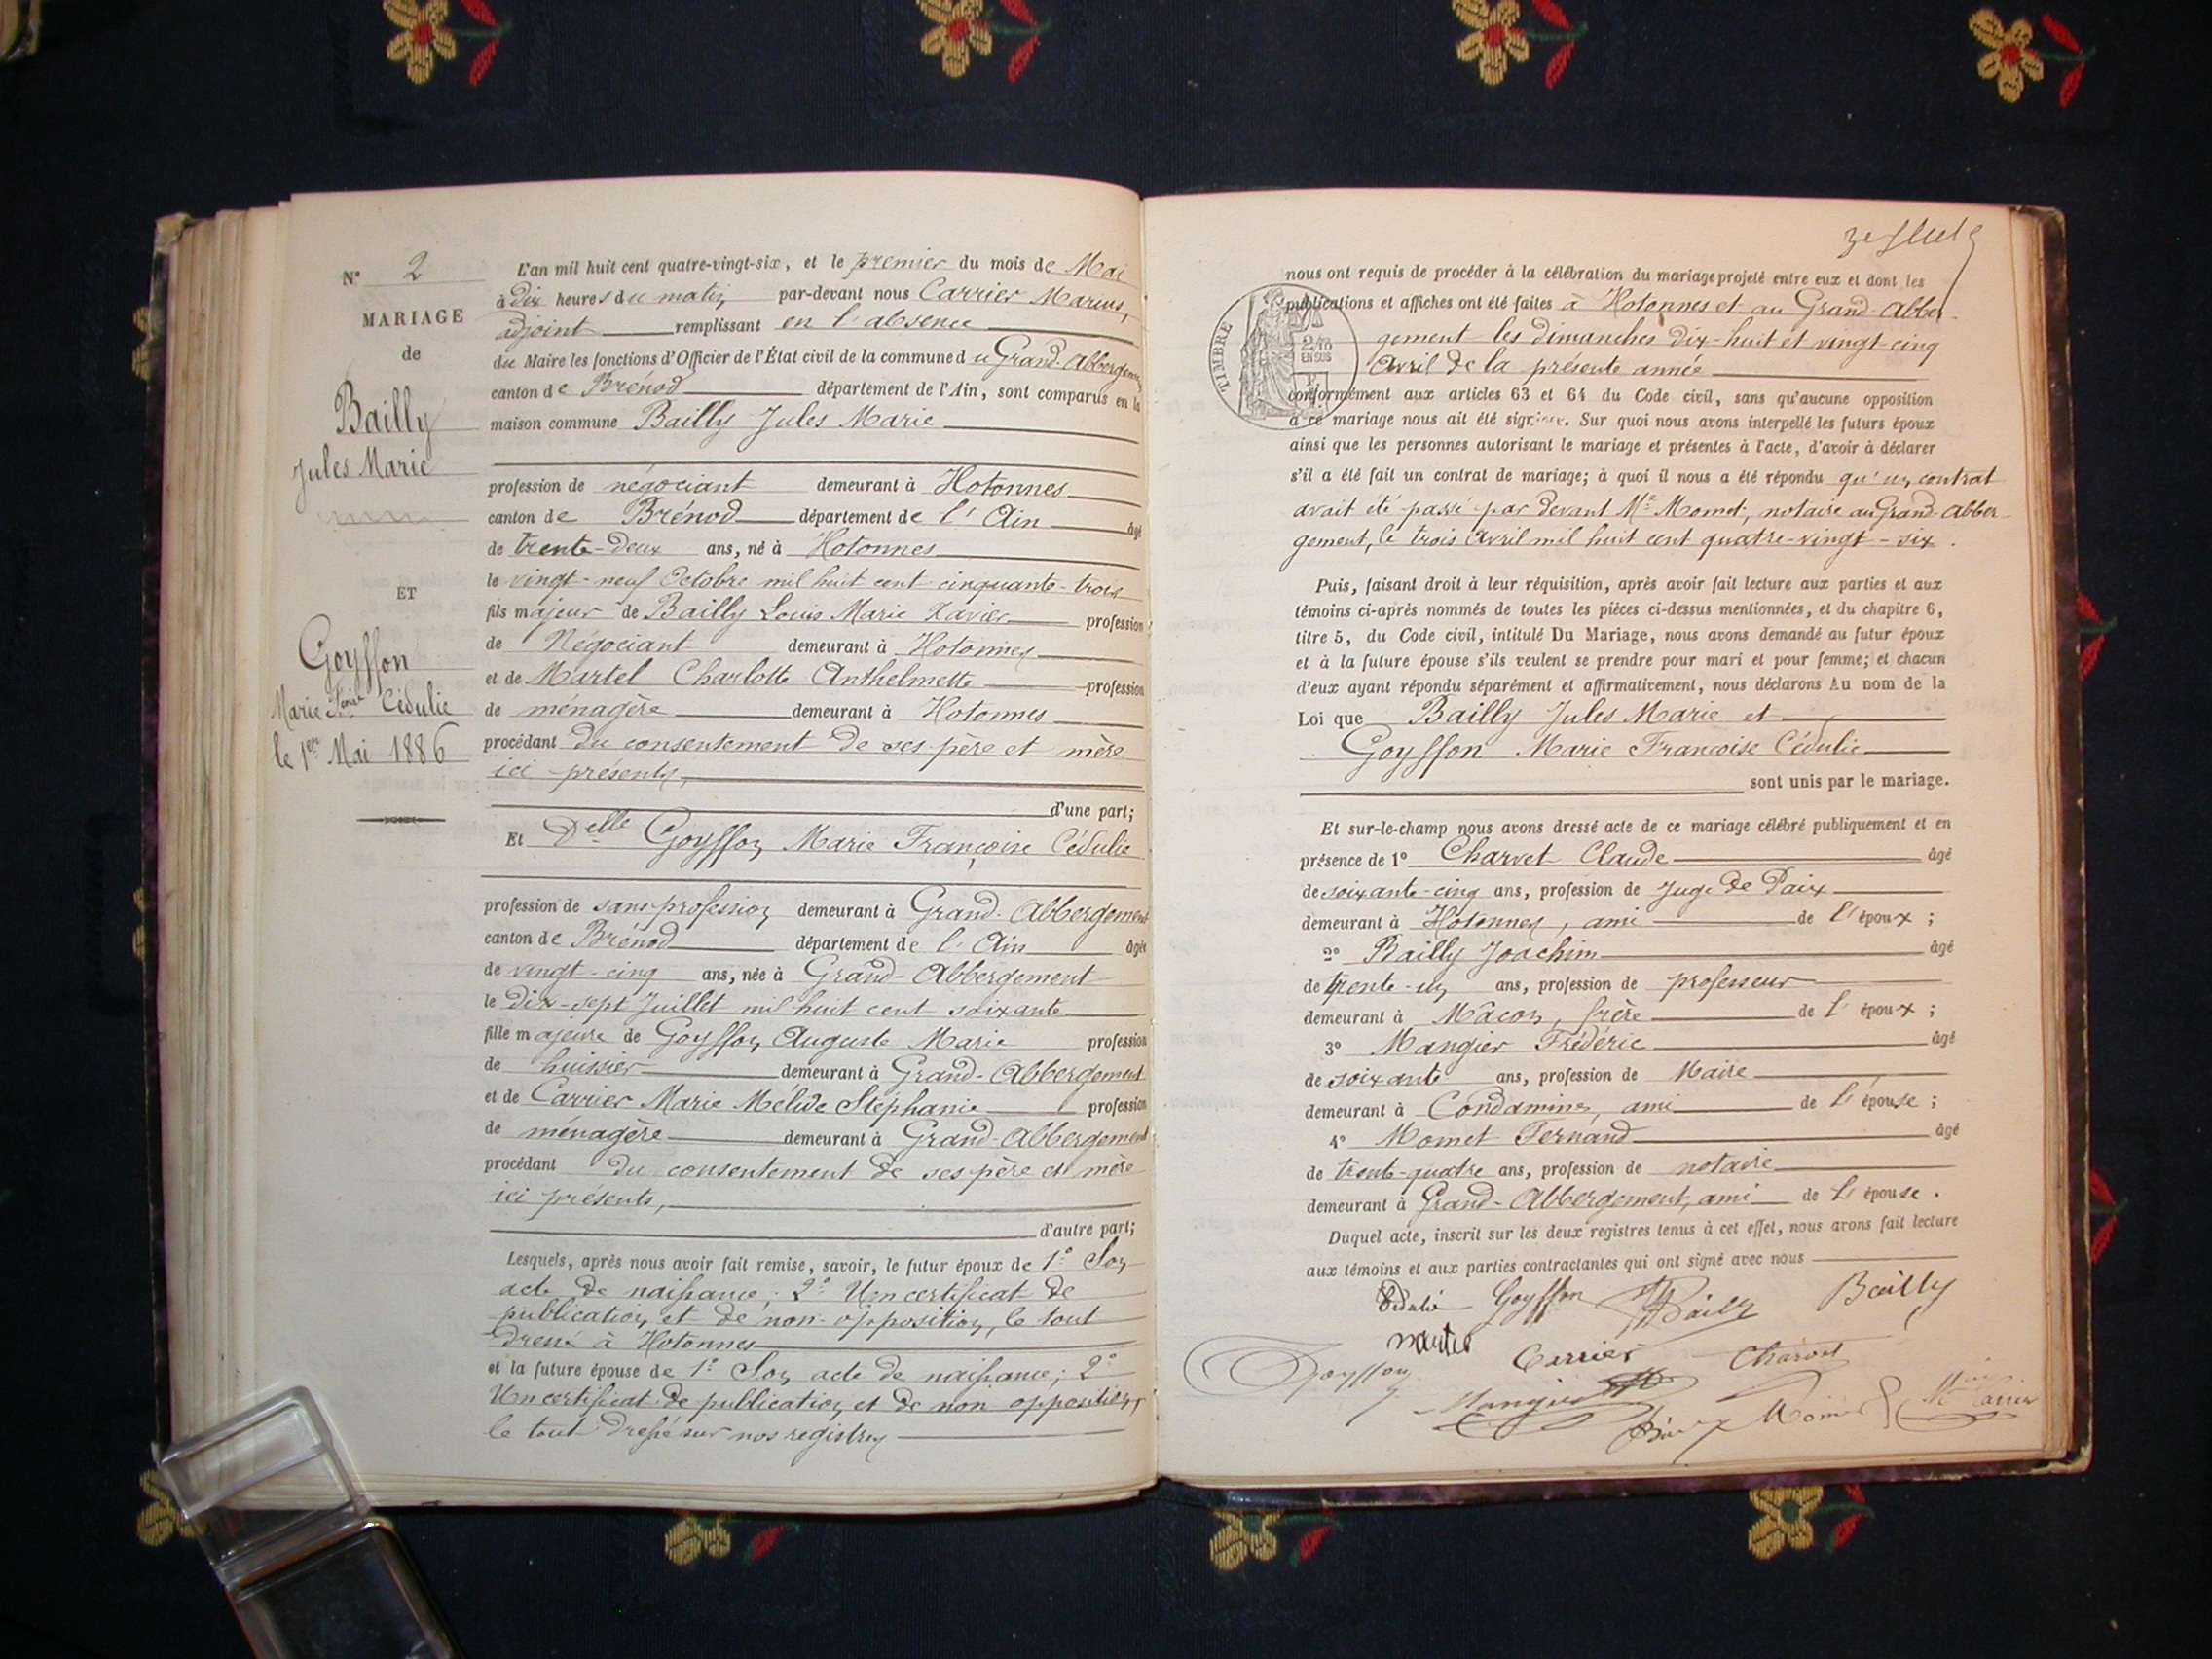 N° 2
MARIAGE
de
Bailly
Jules Marie
ET
Goyffon
Marie Fçoise Cédulie
le 1er Mai 1886
L'an mil huit cent quatre-vingt-six, et le premier du mois de Mai
à dix heures du matin par-devant nous Carrier Marius,
adjoint remplissant en l'absence
du Maire les fonctions d'Officier de l'État civil de la commune du Grand-Abbergement
canton de Brénod département de l'Ain, sont comparus en la
maison commune Bailly Jules Marie
profession de négociant demeurant à Hotonnes
canton de Brénod département de l'Ain âgé
de trente-deux ans, né à Hotonnes
le vingt-neuf Octobre mil huit cent cinquante-trois
fils majeur de Bailly Louis Marie Xavier profession
de Négociant demeurant à Hotonnes
et de Martel Charlotte Anthelmette profession
de ménagère demeurant à Hotonnes
procédant du consentement de ses père et mère
ici présents,
d'une part;
Et Delle Goyffon Marie Françoise Cédulie
profession de sans profession demeurant à Grand-Abbergement
canton de Brénod département de l'Ain âgée
de vingt-cinq ans, née à Grand-Abbergement
le dix-sept Juillet mil huit cent soixante
fille majeure de Goyffon Auguste Marie profession
de huissier demeurant à Grand-Abbergement
et de Carrier Marie Mélide Stéphanie profession
de ménagère demeurant à Grand-Abbergement
procédant du consentement de ses père et mère
ici présents,
d'autre part;
Lesquels, après nous avoir fait remise, savoir, le futur époux de 1° Son
acte de naissance; 2° Un certificat de
publication et de non-opposition, le tout
dressé à Hotonnes
et la future épouse de 1° Son acte de naissance; 2°
Un certificat de publication et de non opposition,
le tout dressé sur nos registres
nous ont requis de procéder à la célébration du mariage projeté entre eux et dont les
publications et affiches ont été faites à Hotonnes et au Grand-Abber-
gement les dimanches dix-huit et vingt-cinq
Avril de la présente année
TIMBRE
EN SUS
conformément aux articles 63 et 64 du Code civil, sans qu'aucune opposition
à ce mariage nous ait été signifiée. Sur quoi nous avons interpellé les futurs époux
ainsi que les personnes autorisant le mariage et présentes à l'acte, d'avoir à déclarer
s'il a été fait un contrat de mariage; à quoi il nous a été répondu qu'un contrat
avait été passé par devant Me Momet, notaire au Grand-Abber-
gement, le trois Avril mil huit cent quatre-vingt-six.
Puis, faisant droit à leur réquisition, après avoir fait lecture aux parties et aux
témoins ci-après nommés de toutes les pièces ci-dessus mentionnées, et du chapitre 6,
titre 5, du Code civil, intitulé Du Mariage, nous avons demandé au futur époux
et à la future épouse s'ils veulent se prendre pour mari et pour femme; et chacun
d'eux ayant répondu séparément et affirmativement, nous déclarons Au nom de la
Loi que Bailly Jules Marie et
Goyffon Marie Françoise Cédulie
sont unis par le mariage.
Et sur-le-champ nous avons dressé acte de ce mariage célébré publiquement et en
présence de 1° Charvet Claude âgé
de soixante-cinq ans, profession de Juge de Paix
demeurant à Hotonnes, ami de l'époux;
2° Bailly Joachim âgé
de trente-un ans, profession de professeur
demeurant à Mâcon, frère de l'époux;
3° Mangier Frédéric âgé
de soixante ans, profession de Maire
demeurant à Condamine, ami de l'épouse;
4° Momet Fernand âgé
de trente-quatre ans, profession de notaire
demeurant à Grand-Abbergement, ami de l'épouse.
Duquel acte, inscrit sur les deux registres tenus à cet effet, nous avons fait lecture
aux témoins et aux parties contractantes qui ont signé avec nous
Cédulie Goyffon Bailly Bailly
Martel Carrier Charvet
Goyffon Mangier